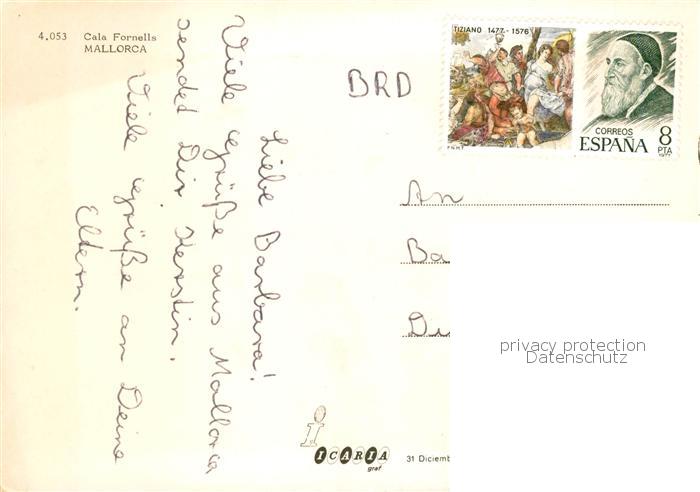 4.053 Cala Fornells
MALLORCA
Liebe Barbara!
Viele Grüße aus Mallorca
sendet Dir Kerstin.
Viele Grüße an Deine
Eltern.
BRD
TIZIANO 1477-1576
F.N.M.T.
CORREOS
ESPAÑA
8
PTA
1977
An
Ba
Di
privacy protection
Datenschutz
i
ICARIA
graf
31 Diciemb